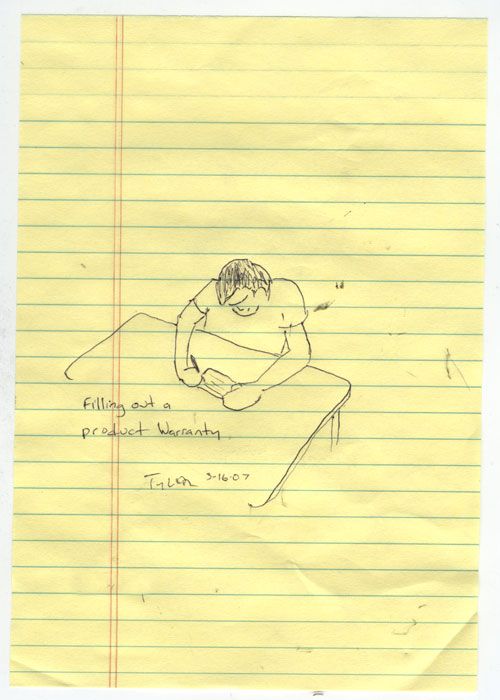 Filling out a
product Warranty.
Tyler 3-16-07